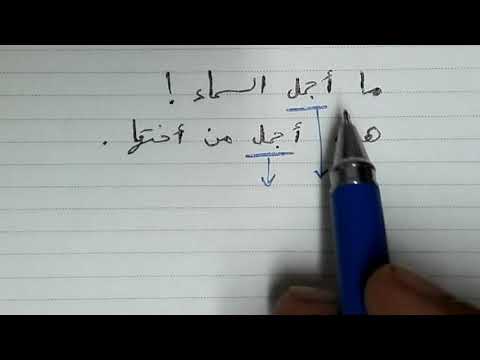 ما أجمل السماء !
أجمل من أختها .